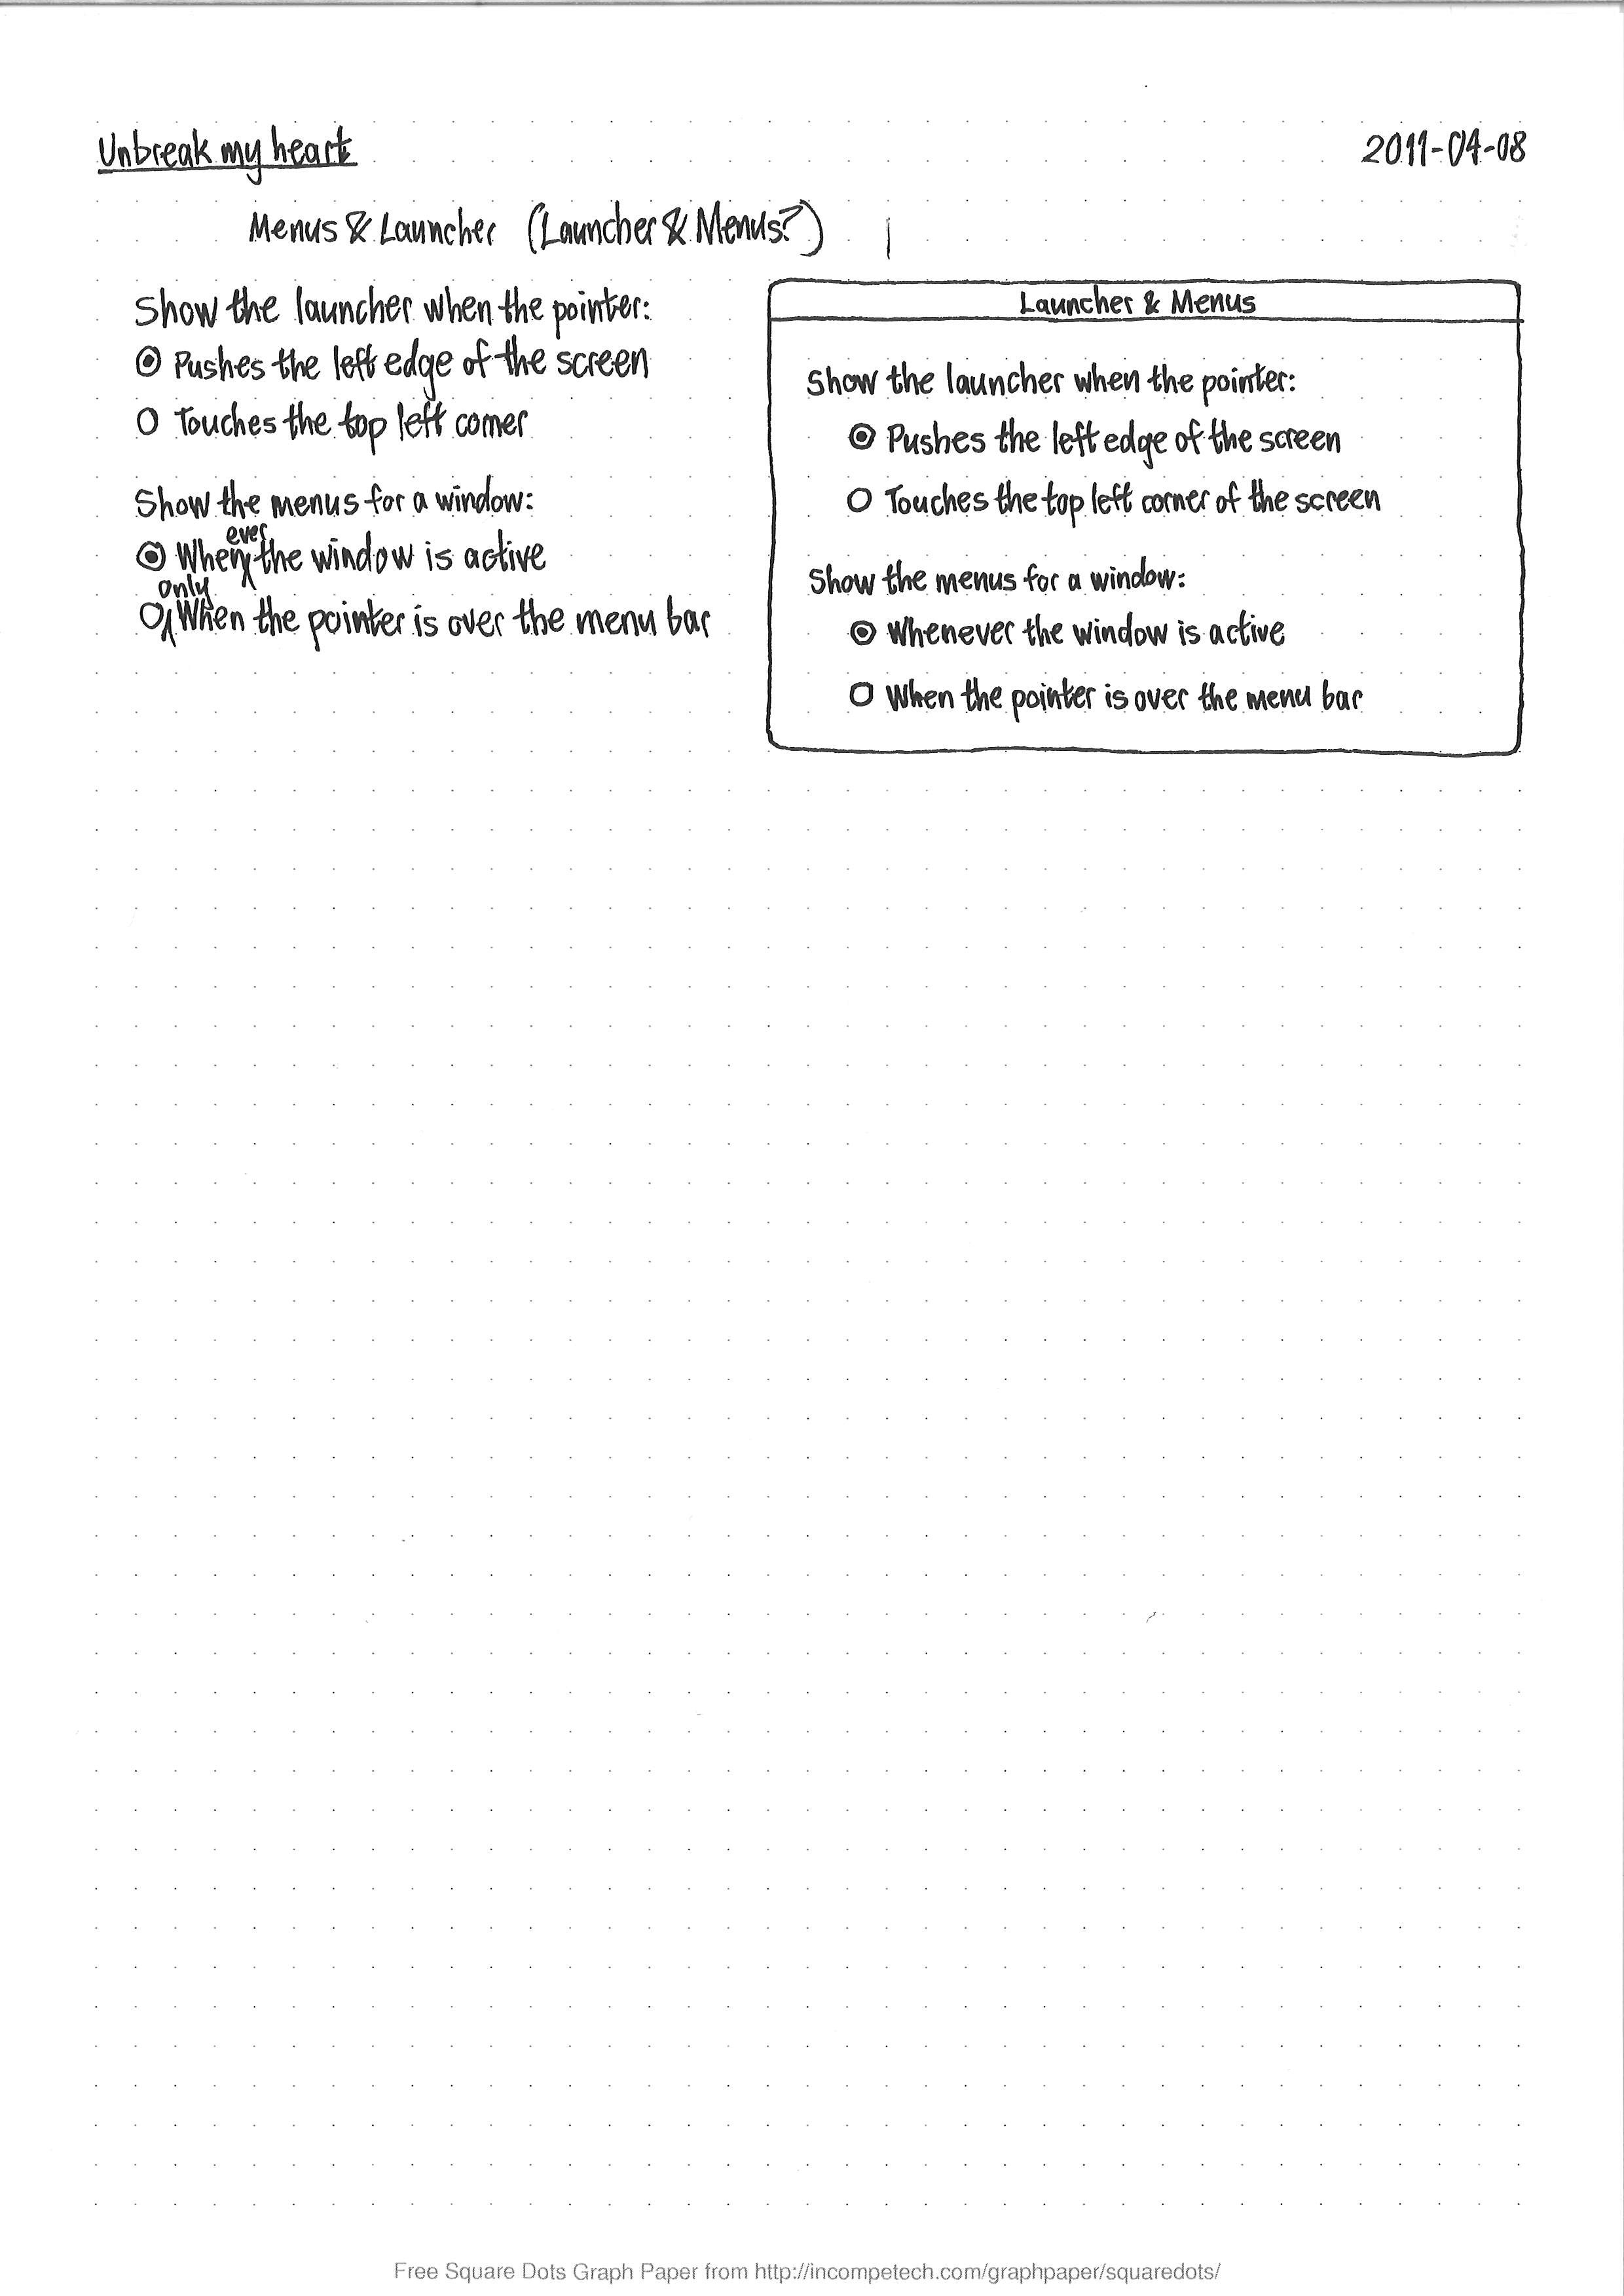 Unbreak my heart
2011-04-08
Menus & Launcher (Launcher & Menus?)
Show the launcher when the pointer:
Pushes the left edge of the screen
Touches the top left corner
Show the menus for a window:
ever
When the window is active
only
When the pointer is over the menu bar
Launcher & Menus
Show the launcher when the pointer:
Pushes the left edge of the screen
Touches the top left corner of the screen
Show the menus for a window:
Whenever the window is active
When the pointer is over the menu bar
Free Square Dots Graph Paper from http://incompetech.com/graphpaper/squaredots/